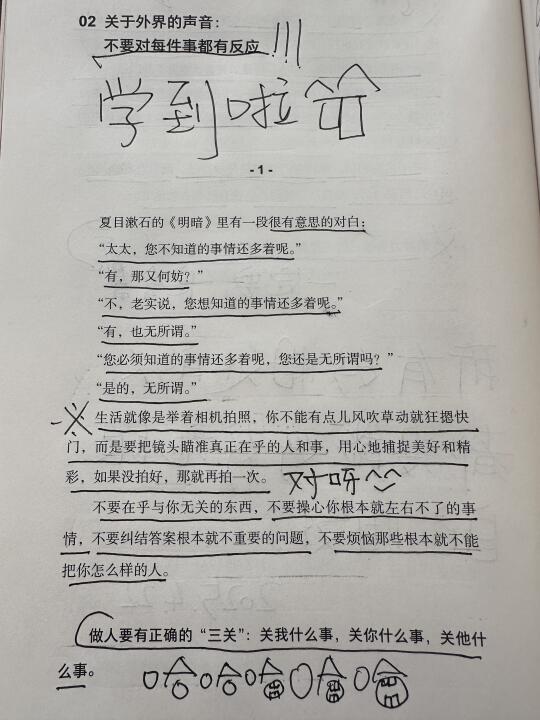 02 关于外界的声音：
不要对每件事都有反应 !!!
学到啦
- 1 -
夏目漱石的《明暗》里有一段很有意思的对白：
“太太，您不知道的事情还多着呢。”
“有，那又何妨？”
“不，老实说，您想知道的事情还多着呢。”
“有，也无所谓。”
“您必须知道的事情还多着呢，您还是无所谓吗？”
“是的，无所谓。”
※ 生活就像是举着相机拍照，你不能有点儿风吹草动就狂摁快
门，而是要把镜头瞄准真正在乎的人和事，用心地捕捉美好和精
彩，如果没拍好，那就再拍一次。 对呀
不要在乎与你无关的东西，不要操心你根本就左右不了的事
情，不要纠结答案根本就不重要的问题，不要烦恼那些根本就不能
把你怎么样的人。
做人要有正确的“三关”：关我什么事，关你什么事，关他什
么事。